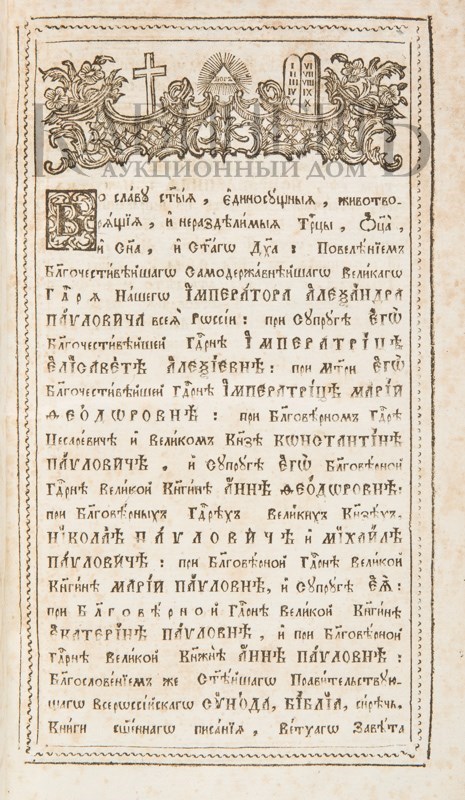 БОГЪ
I II III IV V VI VII VIII IX X
КАБИНЕТЪ
АУКЦИОННЫЙ ДОМ
Во славу ст҃ыѧ, Єдиносущныѧ, животво-
рѧщіѧ, и нераздѣлимыѧ Трⷪ҇цы, Ѻц҃а,
и Сн҃а, и Ст҃агѡ Дх҃а: Повелѣніемъ
Бл҃гочестивѣйшагѡ Самодержавнѣйшагѡ Великагѡ
Гдⷭ҇рѧ Нашегѡ ІМПЕРАТОРА АЛЕѮАНДРА
ПАѴЛОВИЧА всеѧ̀ Рѡссіи: при Супругѣ ЕГѠ̀
Бл҃гочестивѣйшей Гдⷭ҇рнѣ ІМПЕРАТРИЦѢ
ЕЛІСАВЕТѢ АЛЕѮІЕВНѢ: при Мт҃ри ЕГѠ̀
Бл҃гочестивѣйшей Гдⷭ҇рнѣ ІМПЕРАТРИЦѢ МАРІИ
ѲЕОДѠРОВНѢ: при Бл҃говѣрномъ Гдⷭ҇рѣ
Цесаревичѣ и Великомъ Кн҃зѣ КѠНСТАНТІНѢ
ПАѴЛОВИЧѢ, и Супругѣ ЕГѠ̀ Бл҃говѣрной
Гдⷭ҇рнѣ Великой Кн҃гинѣ АННѢ ѲЕОДѠРОВНѢ:
при Бл҃говѣрныхъ Гдⷭ҇рѣхъ Великихъ Кн҃зѣхъ,
НІКОЛАѢ ПАѴЛОВИЧѢ и МІХАИЛѢ
ПАѴЛОВИЧѢ: при Бл҃говѣрной Гдⷭ҇рнѣ Великой
Кн҃гинѣ МАРІИ ПАѴЛОВНѢ, и Супругѣ ЕѦ̀:
при Бл҃говѣрной Гдⷭ҇рнѣ Великой Кн҃гинѣ
ЕКАТЕРІНѢ ПАѴЛОВНѢ, и при Бл҃говѣрной
Гдⷭ҇рнѣ Великой Кн҃жнѣ АННѢ ПАѴЛОВНѢ:
Бл҃гословеніемъ же Ст҃ѣйшагѡ Правительствую-
щагѡ Всерѡссійскагѡ СѴНОДА, БІБЛІА, сирѣчь.
Книги сщ҃еннагѡ писаніѧ, Ветхагѡ Завѣта